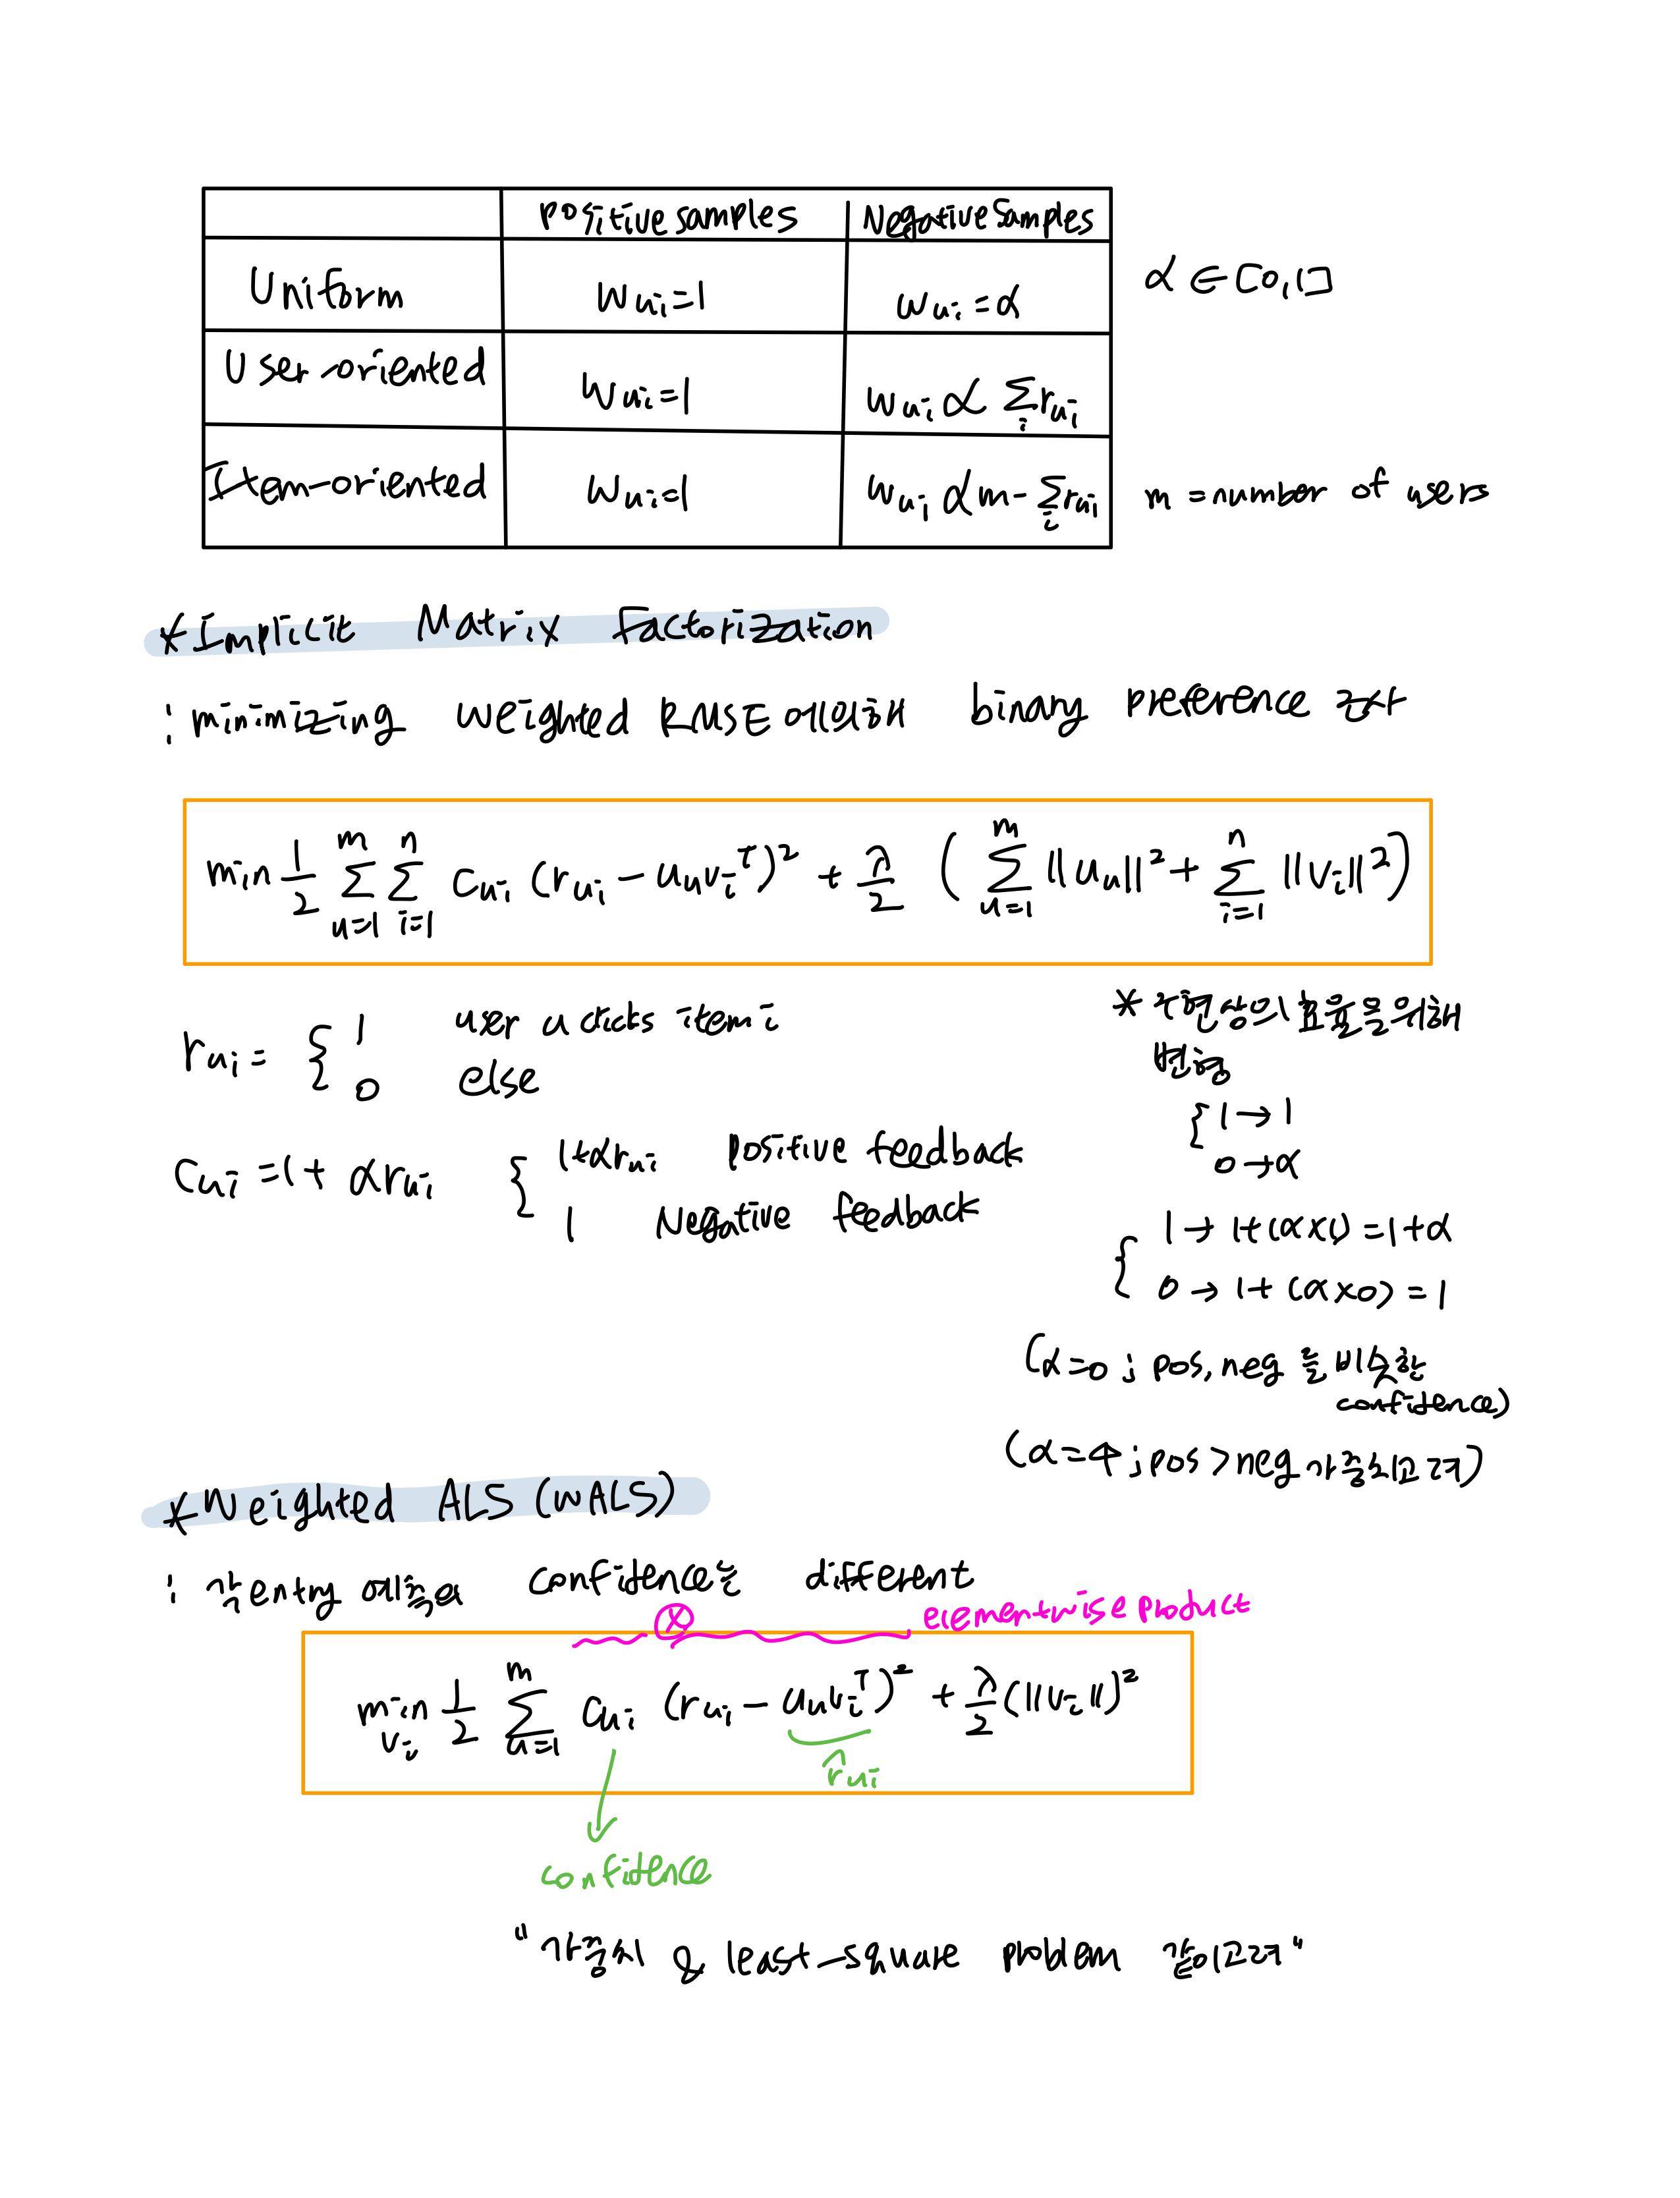 Positive samples Negative Samples
Uniform w_ui=1 w_ui=α α∈[0,1]
User-oriented w_ui=1 w_ui ∝ Σ_i r_ui
Item-oriented w_ui=1 w_ui ∝ m-Σ_i r_ui m = number of users
*Implicit Matrix Factorization
: minimizing weighted RMSE에의해 binary preference 근사
min 1/2 Σ_{u=1}^{m} Σ_{i=1}^{n} c_ui (r_ui - u_u v_i^T)^2 + λ/2 ( Σ_{u=1}^{m} ||u_u||^2 + Σ_{i=1}^{n} ||v_i||^2 )
r_ui = { 1 user u clicks item i
0 else
c_ui = 1 + αr_ui { 1+αr_ui positive feedback
1 Negative feedback
* 구현상의 효율을 위해
변형
{ 1 → 1
0 → α
{ 1 → 1+(α×1) = 1+α
0 → 1+(α×0) = 1
(α=0 ; pos, neg 를 비슷한
confidence)
(α=4 ; pos > neg 가중치고려)
*Weighted ALS (WALS)
: 각 entry 예측의 confidence는 different
⊗ elementwise product
min_{v_i} 1/2 Σ_{u=1}^{m} c_ui (r_ui - u_u v_i^T)^2 + λ/2 (||v_i||)^2
r̂_ui
confidence
"가중치 & least-square problem 같이고려"